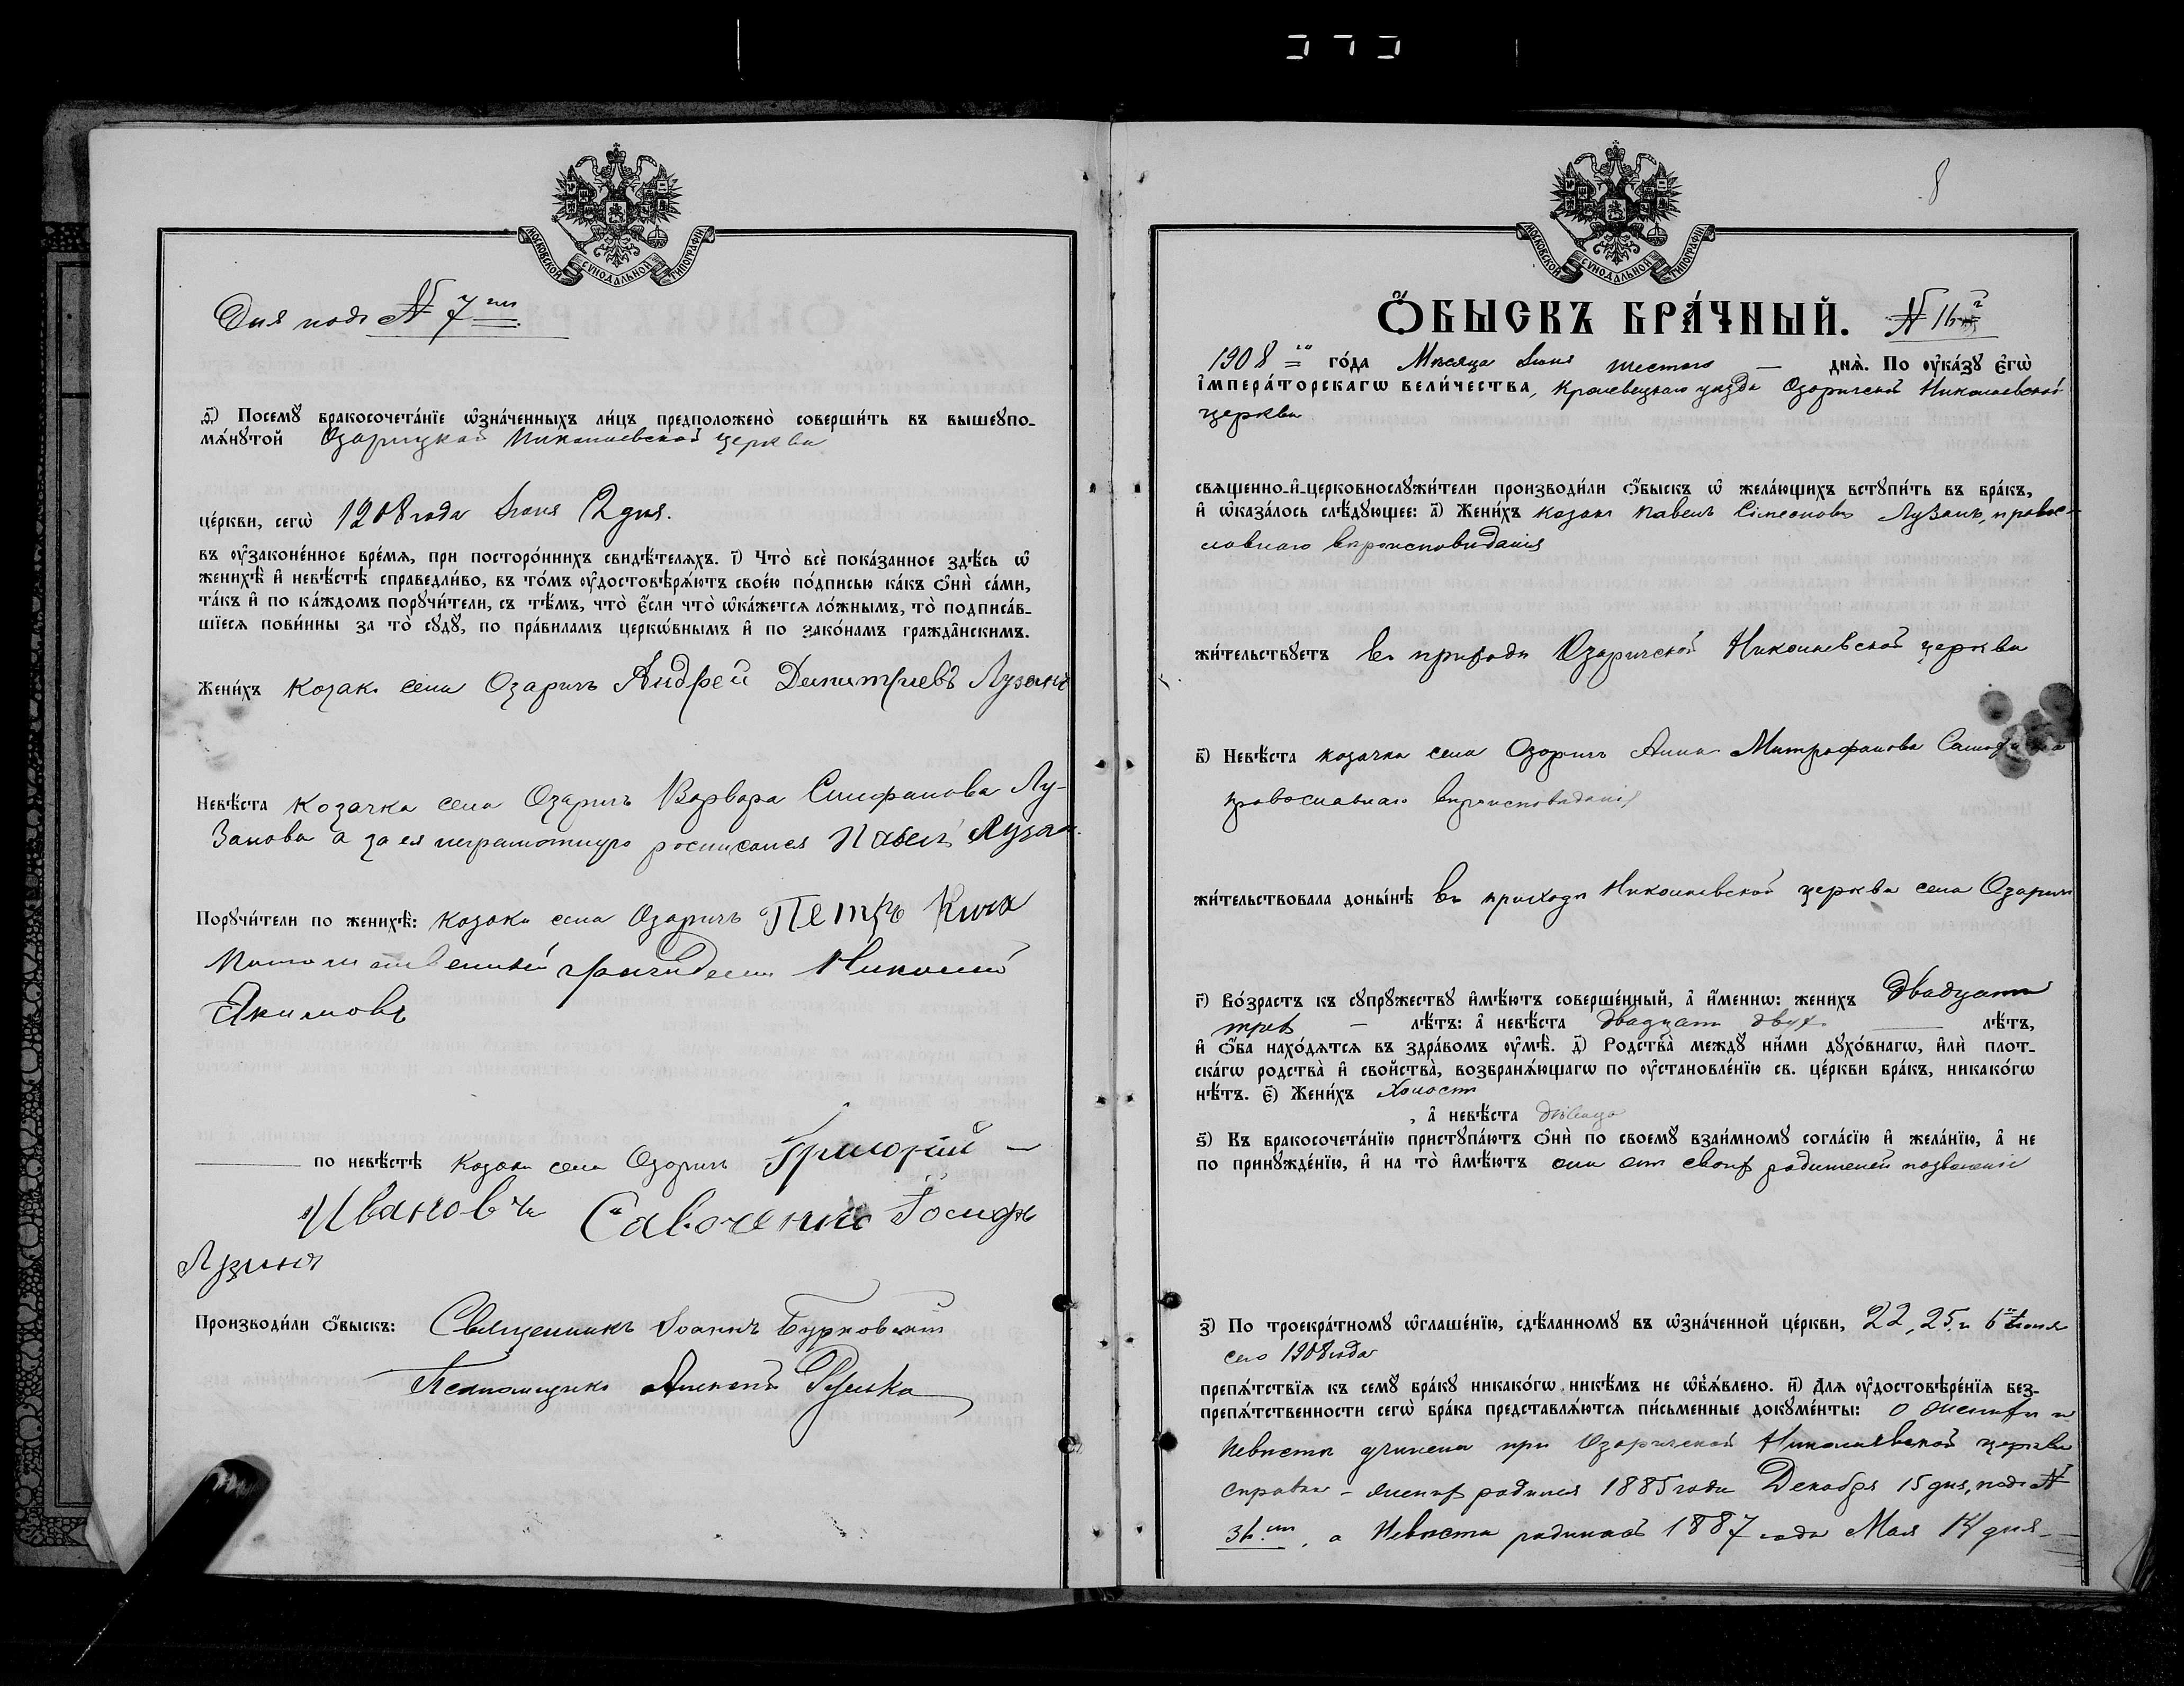 МОСКОВСКОЙ СѴНОДАЛЬНОЙ ТИПОГРАФІИ
Дня подъ № 7мъ
ѳ҃) Посемꙋ̀ бракосочета́нїе ѡ҆зна́ченныхъ ли́цъ предположено̀ соверши́ть въ вышеꙋпо-
мѧ́нꙋтой Озарицкой Николаевской церкви
це́ркви, сегѡ̀ 1908 года Іюня 2 дня.
въ ᲂу҆законе́нное вре́мѧ, при посторо́ннихъ свидѣ́телѧхъ. і҃) Что̀ всѐ пока́занное здѣ́сь ѡ҆
женихѣ̀ и҆ невѣ́стѣ справедли́во, въ то́мъ ᲂу҆достовѣрѧ́ютъ свое́ю по́дписью ка́къ ѻ҆нѝ са́ми,
та́къ и҆ по ка́ждомъ порꙋчи́тели, съ тѣ́мъ, что̀ є҆́сли что̀ ѡ҆ка́жетсѧ ло́жнымъ, то̀ подписа́в-
шїесѧ пови́нны за то̀ сꙋдꙋ̀, по пра́виламъ церкѡ́внымъ и҆ по зако́намъ гражда̑нскимъ.
Жени́хъ козакъ села Озаричъ Андрей Димитриевъ Лузанъ
Невѣ́ста козачка села Озаричъ Варвара Стефанова Лу-
занова а за ея неграмотную росписался Павелъ Лузан
Порꙋчи́тели по женихѣ̀: козаки села Озаричъ Петръ Кича
Потомственный гражданин Николай
Якимовъ
по невѣ́стѣ козаки села Озаричъ Григорий
Ивановъ Савоченко Іосифъ
Лузанъ
Производи́ли ѻ҆́быскъ: Священникъ Іоаннъ Бурковскій
Псаломщикъ Алексѣй
8
МОСКОВСКОЙ СѴНОДАЛЬНОЙ ТИПОГРАФІИ
Ѻ҆́БЫСКЪ БРА́ЧНЫЙ. № 16й
1908го го́да Мѣсяца Іюня шестого — днѧ̀. По ᲂу҆ка́зꙋ Є҆гѡ̀
І҆мпера́торскагѡ вели́чества, Кролевецкаго уѣзда Озаричской Николаевской
церкви
свѧщенно-и҆-церковнослꙋжи́тели производи́ли ѻ҆́быскъ ѡ҆ жела́ющихъ встꙋпи́ть въ бра́къ,
и҆ ѡ҆каза́лось слѣ́дꙋющее: а҃) Жени́хъ козакъ Павелъ Сімеоновъ Лузанъ, правос-
лавнаго вѣроисповѣданія
жи́тельствꙋетъ въ приходѣ Озаричской Николаевской церкви
в҃) Невѣ́ста козачка села Озаричъ Анна Митрофанова
православнаго вѣроисповѣданія
жи́тельствовала доны́нѣ въ приходѣ Николаевской церкви села Озаричъ
г҃) Во́зрастъ къ сꙋпрꙋ́жествꙋ и҆мѣ́ютъ соверше́нный, а҆ и҆́меннѡ: жени́хъ двадцати
трех — лѣ́тъ: а҆ невѣ́ста двадцати двух — лѣ́тъ,
и҆ ѻ҆́ба нахо́дѧтсѧ въ здра́вомъ ᲂу҆мѣ̀. д҃) Родства̀ междꙋ̀ ни́ми дꙋхо́внагѡ, и҆лѝ плот-
ска́гѡ родства̀ и҆ свойства̀, возбранѧ́ющагѡ по ᲂу҆становле́нїю св. це́ркви бра́къ, никако́гѡ
нѣ́тъ. є҃) Жени́хъ холост
, а҆ невѣ́ста дѣвица
ѕ҃) Къ бракосочета́нїю пристꙋпа́ютъ ѻ҆нѝ по своемꙋ̀ взаи́мномꙋ согла́сїю и҆ жела́нїю, а҆ не
по принꙋжде́нїю, и҆ на то̀ и҆мѣ́ютъ они от своих родителей позволеніе
з҃) По троекра́тномꙋ ѡ҆глаше́нїю, сдѣ́ланномꙋ въ ѡ҆зна́ченной це́ркви, 22, 25, и 6 Іюня
сего 1908 года
препѧ́тствїѧ къ семꙋ̀ бра́кꙋ никако́гѡ никѣ́мъ не ѡ҆б̾ѧ́влено. и҃) Длѧ ᲂу҆достовѣре́нїѧ без-
препѧ́тственности сегѡ̀ бра́ка представлѧ́ютсѧ пи́сьменные докꙋме́нты: о женихѣ и
невѣстѣ учинена при Озаричской Николаевской церкви
справка — женихъ родился 1885 года Декабря 15 дня, подъ №
36мъ, а невѣста родилась 1887 года Мая 14 дня